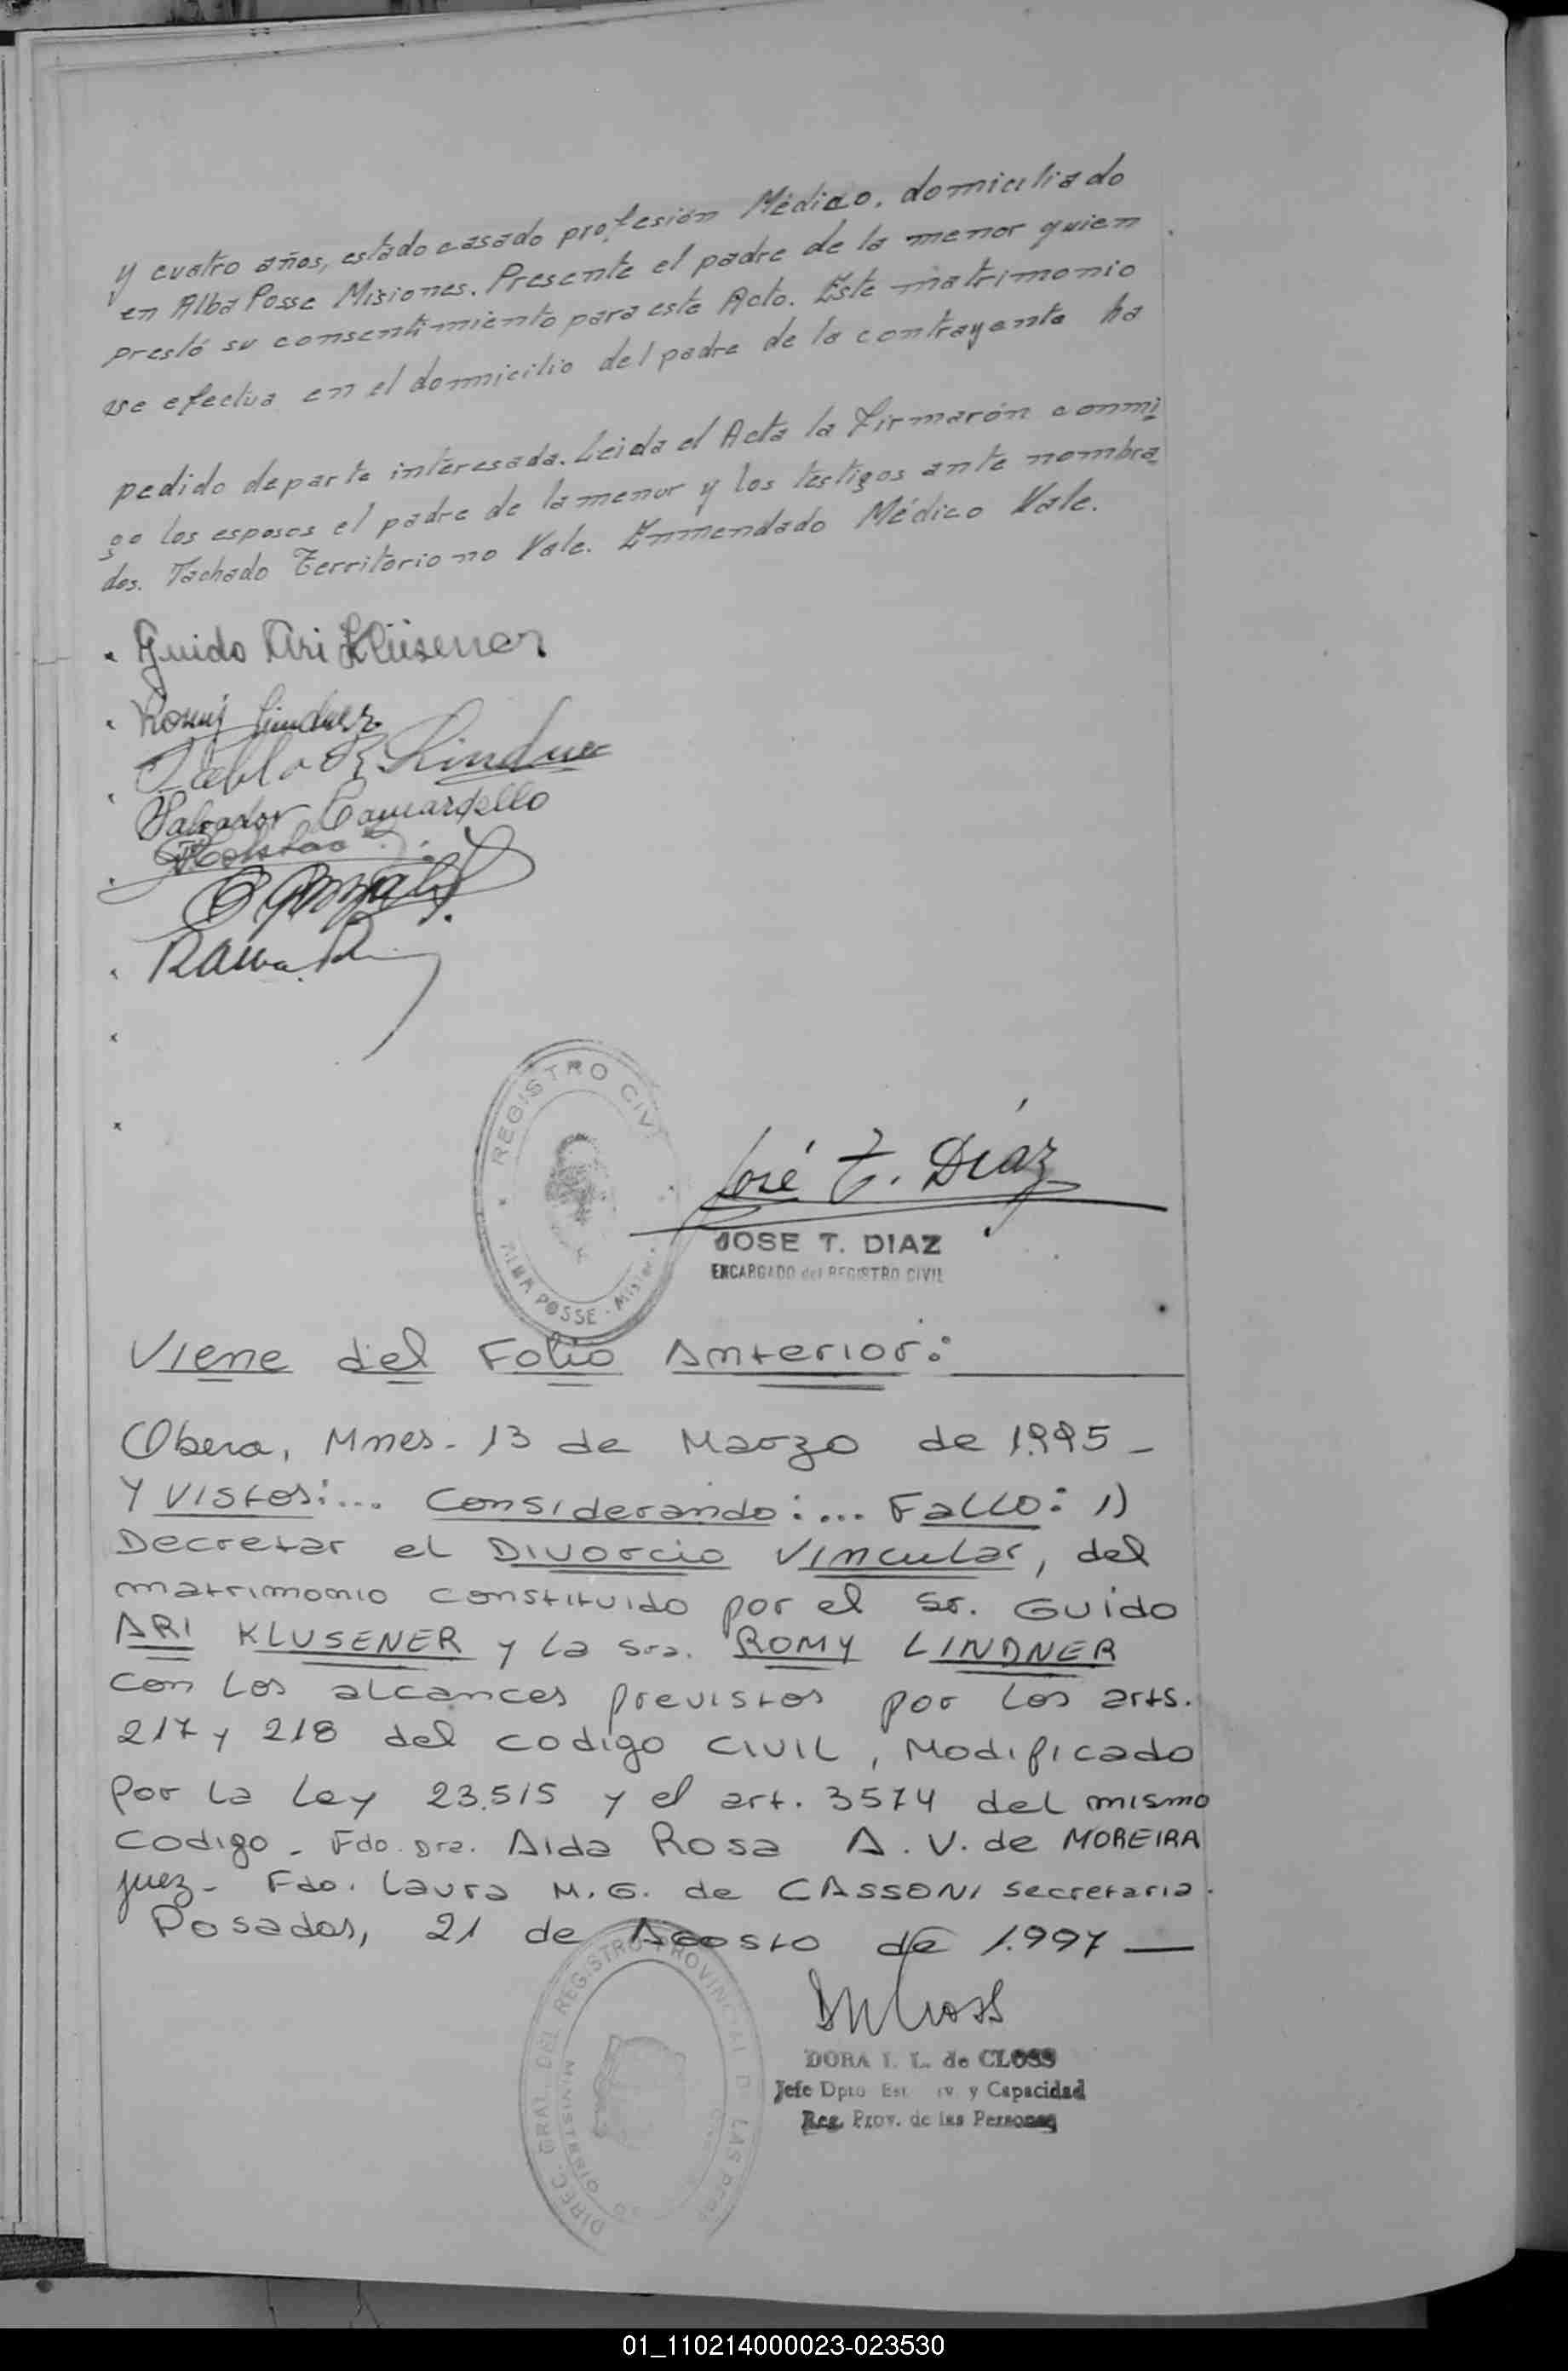 y cuatro años, estado casado profesión Médico, domiciliado
en Alba Posse Misiones. Presente el padre de la menor quien
prestó su consentimiento para este Acto. Este matrimonio
se efectua en el domicilio del padre de la contrayente ha
pedido de parte interesada. Leida el Acta la Firmarón conmi
go los esposos el padre de la menor y los testigos ante nombra
dos. Tachado Territorio no Vale. Enmendado Médico Vale.
Guido Ari Klüsener
Romy Lindner
Pablo Lindner
Salvador Camardello
REGISTRO CIVIL
ALBA POSSE - Misiones
José T. Díaz
JOSE T. DIAZ
ENCARGADO del REGISTRO CIVIL
Viene del Folio Anterior:
Obera, Mnes. 13 de Marzo de 1.995 -
Y Vistos:... Considerando:... Fallo: 1)
Decretar el Divorcio Vincular, del
matrimonio constituido por el Sr. Guido
ARI KLUSENER y la Sra. ROMY LINDNER
con los alcances previstos por los arts.
217 y 218 del codigo civil, Modificado
por la Ley 23.515 y el art. 3574 del mismo
codigo - Fdo. Dra. Aida Rosa A. V. de MOREIRA
juez - Fdo. Laura M. G. de CASSONI secretaria.
Posadas, 21 de Agosto de 1.997 —
DIREC. GRAL. DEL REGISTRO PROVINCIAL DE LAS
MINISTERIO
DORA I. L. de CLOSS
Jefe Dpto Est. y Capacidad
Reg. Prov. de las Personas
01_110214000023-023530